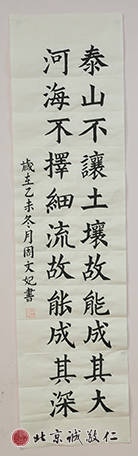 泰山不讓土壤故能成其大
河海不擇細流故能成其深
歲在乙未冬月周文妃書
北京誠敬仁